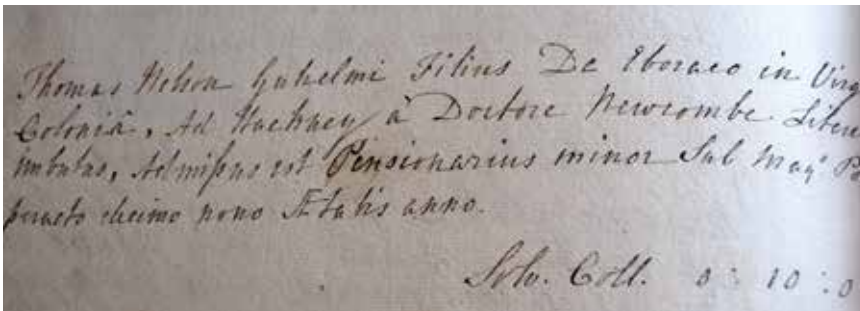 Thomas Nelson Gulielmi Filius De Eboraco in Virg
Coloniâ, Ad Hackney à Doctore Newcombe Litere
imbutus, Admissus est Pensionarius minor Sub Mag
peracto decimo nono Ætatis anno.
Solv. Coll. 0 : 10 : 0